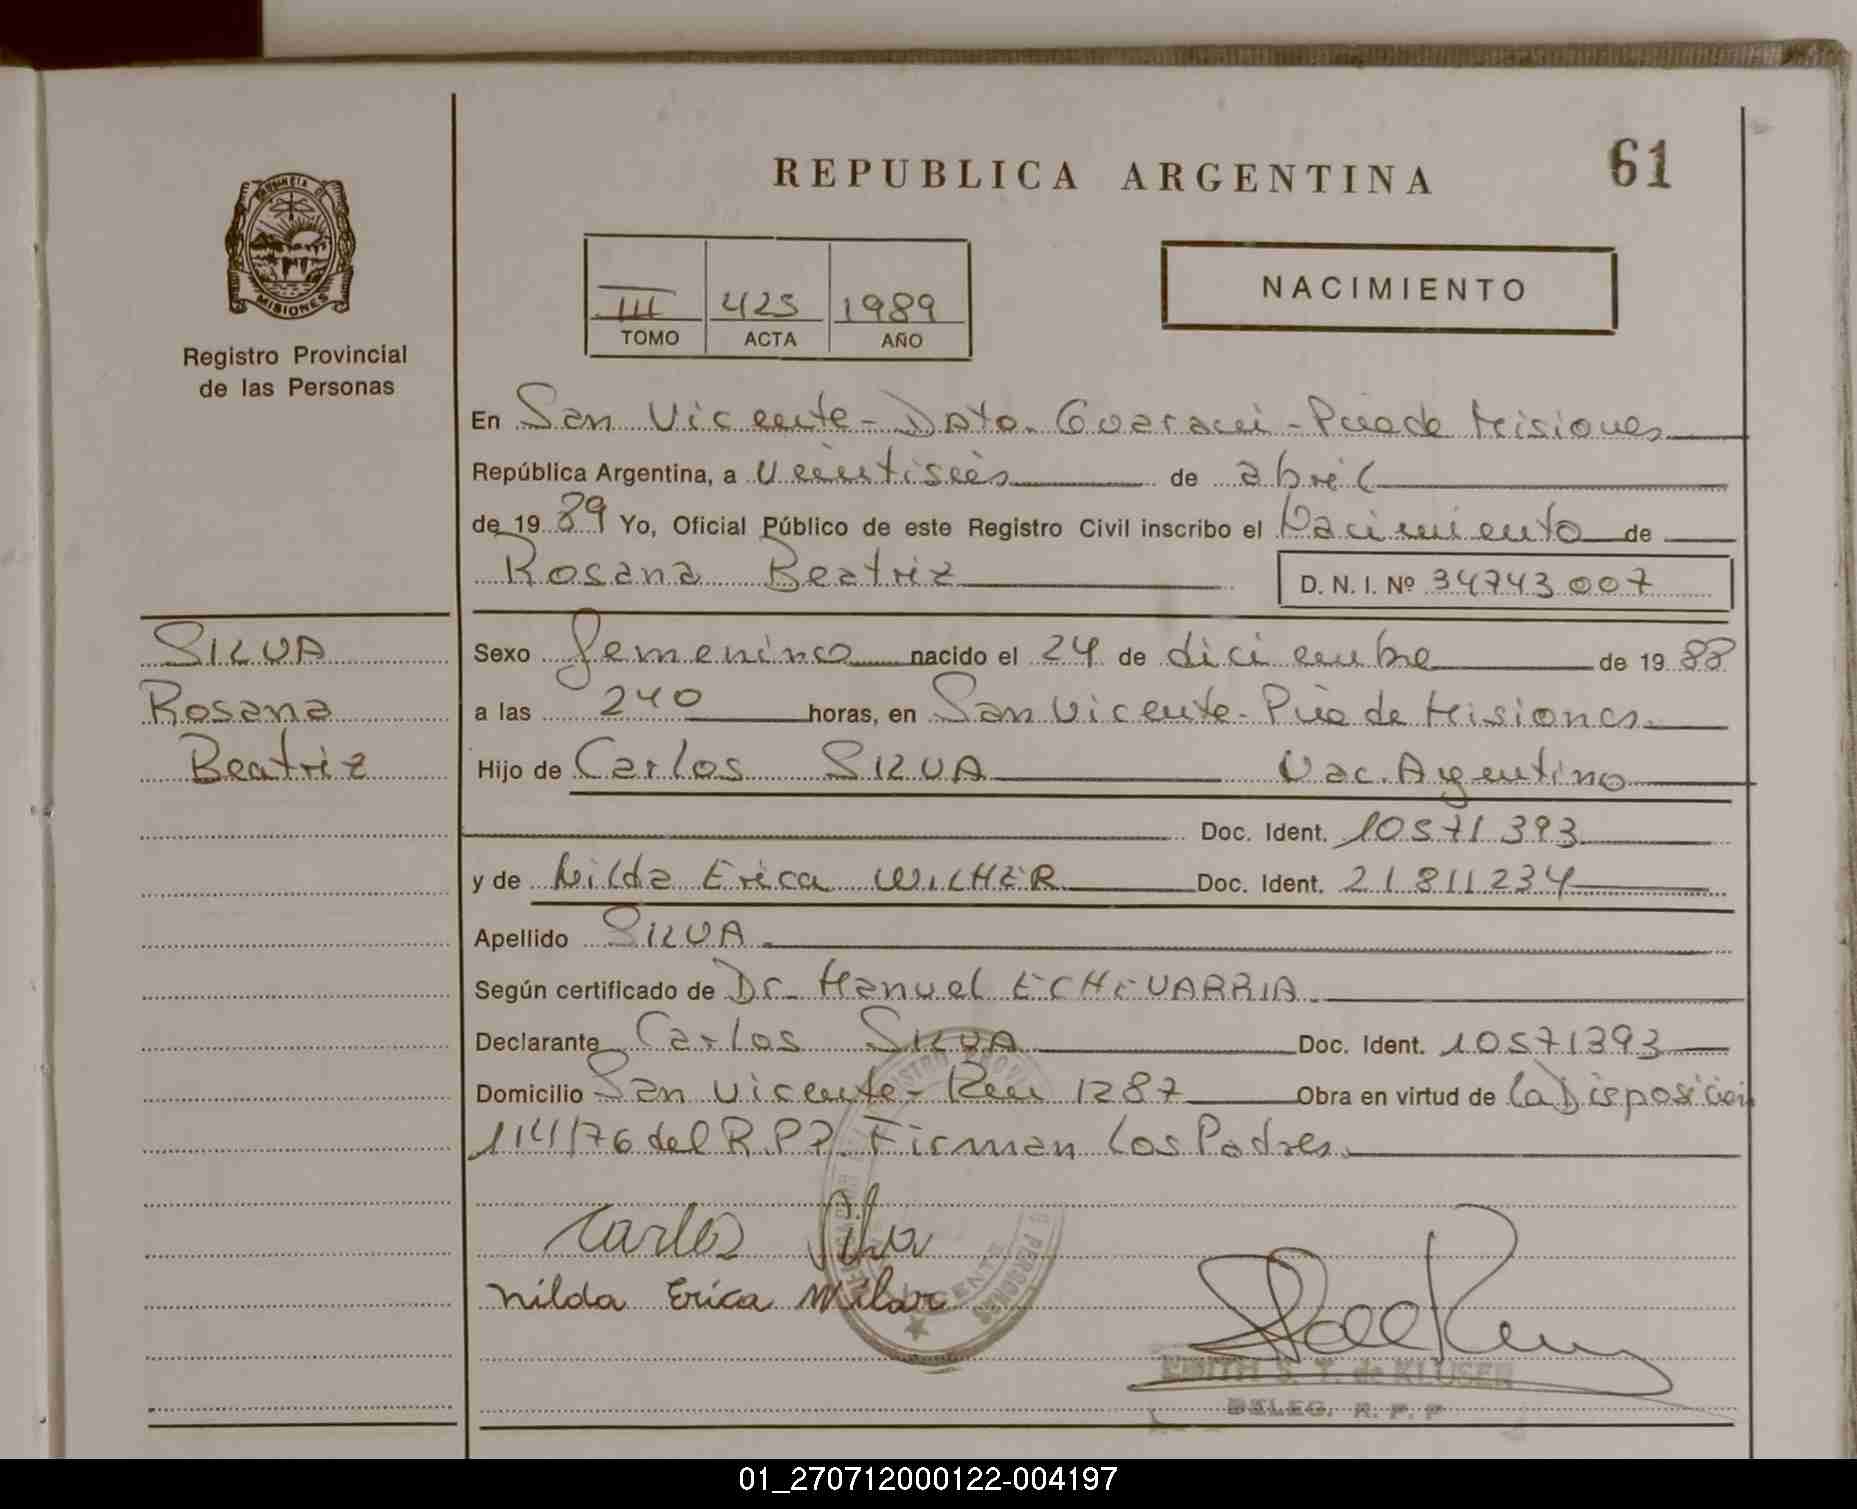 REPUBLICA ARGENTINA
61
PROVINCIA DE
MISIONES
Registro Provincial
de las Personas
III 425 1989
TOMO ACTA AÑO
NACIMIENTO
En San Vicente - Dpto. Guaraní - Pcia de Misiones
República Argentina, a veintiséis de abril
de 1989 Yo, Oficial Público de este Registro Civil inscribo el Nacimiento de
Rosana Beatriz D. N. I. Nº 34743007
SILVA
Rosana
Beatriz
Sexo femenino nacido el 24 de diciembre de 1988
a las 240 horas, en San Vicente - Pcia de Misiones.
Hijo de Carlos SILVA Nac. Argentino
Doc. Ident. 10571393
y de Nilda Erica WILHER Doc. Ident. 21811234
Apellido SILVA
Según certificado de Dr. Manuel ECHEVARRIA
Declarante Carlos SILVA Doc. Ident. 10571393
Domicilio San Vicente - 1287 Obra en virtud de la Disposicion
114/76 del R.P.P. Firman los Padres.
Carlos Silva
Nilda Erica Milar
EDITH S. T. de KLUSEN
DELEG. R. P. P
01_270712000122-004197